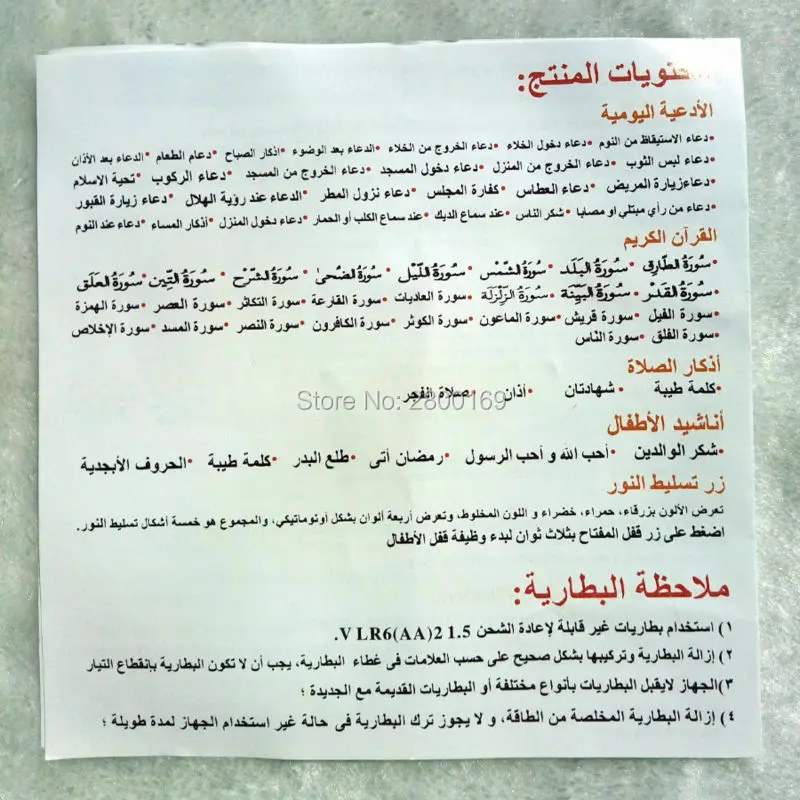 محتويات المنتج:
الأدعية اليومية
•دعاء الاستيقاظ من النوم •دعاء دخول الخلاء •دعاء الخروج من الخلاء •الدعاء بعد الوضوء •اذكار الصباح •دعام الطعام •الدعاء بعد الأذان
•دعاء لبس الثوب •دعاء الخروج من المنزل •دعاء دخول المسجد •دعاء الخروج من المسجد •دعاء الركوب •تحية الاسلام
•دعاءزيارة المريض •دعاء العطاس •كفارة المجلس •دعاء نزول المطر •الدعاء عند رؤية الهلال •دعاء زيارة القبور
•دعاء من رأي مبتلي او مصابا •شكر الناس •عند سماع الديك •عند سماع الكلب أو الحمار •دعاء دخول المنزل •أذكار المساء •دعاء عند النوم
القرآن الكريم
•سورة الطارق •سورة البلد •سورة الشمس •سورة الليل •سورة الضحى •سورة الشرح •سورة التين •سورة العلق
•سورة القدر •سورة البينة •سورة الزلزلة •سورة العاديات •سورة القارعة •سورة التكاثر •سورة العصر •سورة الهمزة
•سورة الفيل •سورة قريش •سورة الماعون •سورة الكوثر •سورة الكافرون •سورة النصر •سورة المسد •سورة الإخلاص
•سورة الفلق •سورة الناس
أذكار الصلاة
•كلمة طيبة •شهادتان •أذان •صلاة الفجر
Store No: 2800169
أناشيد الأطفال
•شكر الوالدين •أحب الله و أحب الرسول •رمضان أتى •طلع البدر •كلمة طيبة •الحروف الأبجدية
زر تسليط النور
تعرض الألون بزرقاء، حمراء، خضراء و اللون المخلوط، وتعرض أربعة ألوان بشكل أوتوماتيكي، والمجموع هو خمسة أشكال تسليط النور.
اضغط على زر قفل المفتاح بثلاث ثوان لبدء وظيفة قفل الأطفال
ملاحظة البطارية:
١) استخدام بطاريات غير قابلة لإعادة الشحن 1.5 V LR6(AA)2.
٢) إزالة البطارية وتركيبها بشكل صحيح على حسب العلامات فى غطاء البطارية، يجب أن لا تكون البطارية بإنقطاع التيار
٣)الجهاز لايقبل البطاريات بأنواع مختلفة أو البطاريات القديمة مع الجديدة ؛
٤) إزالة البطارية المخلصة من الطاقة، و لا يجوز ترك البطارية فى حالة غير استخدام الجهاز لمدة طويلة ؛